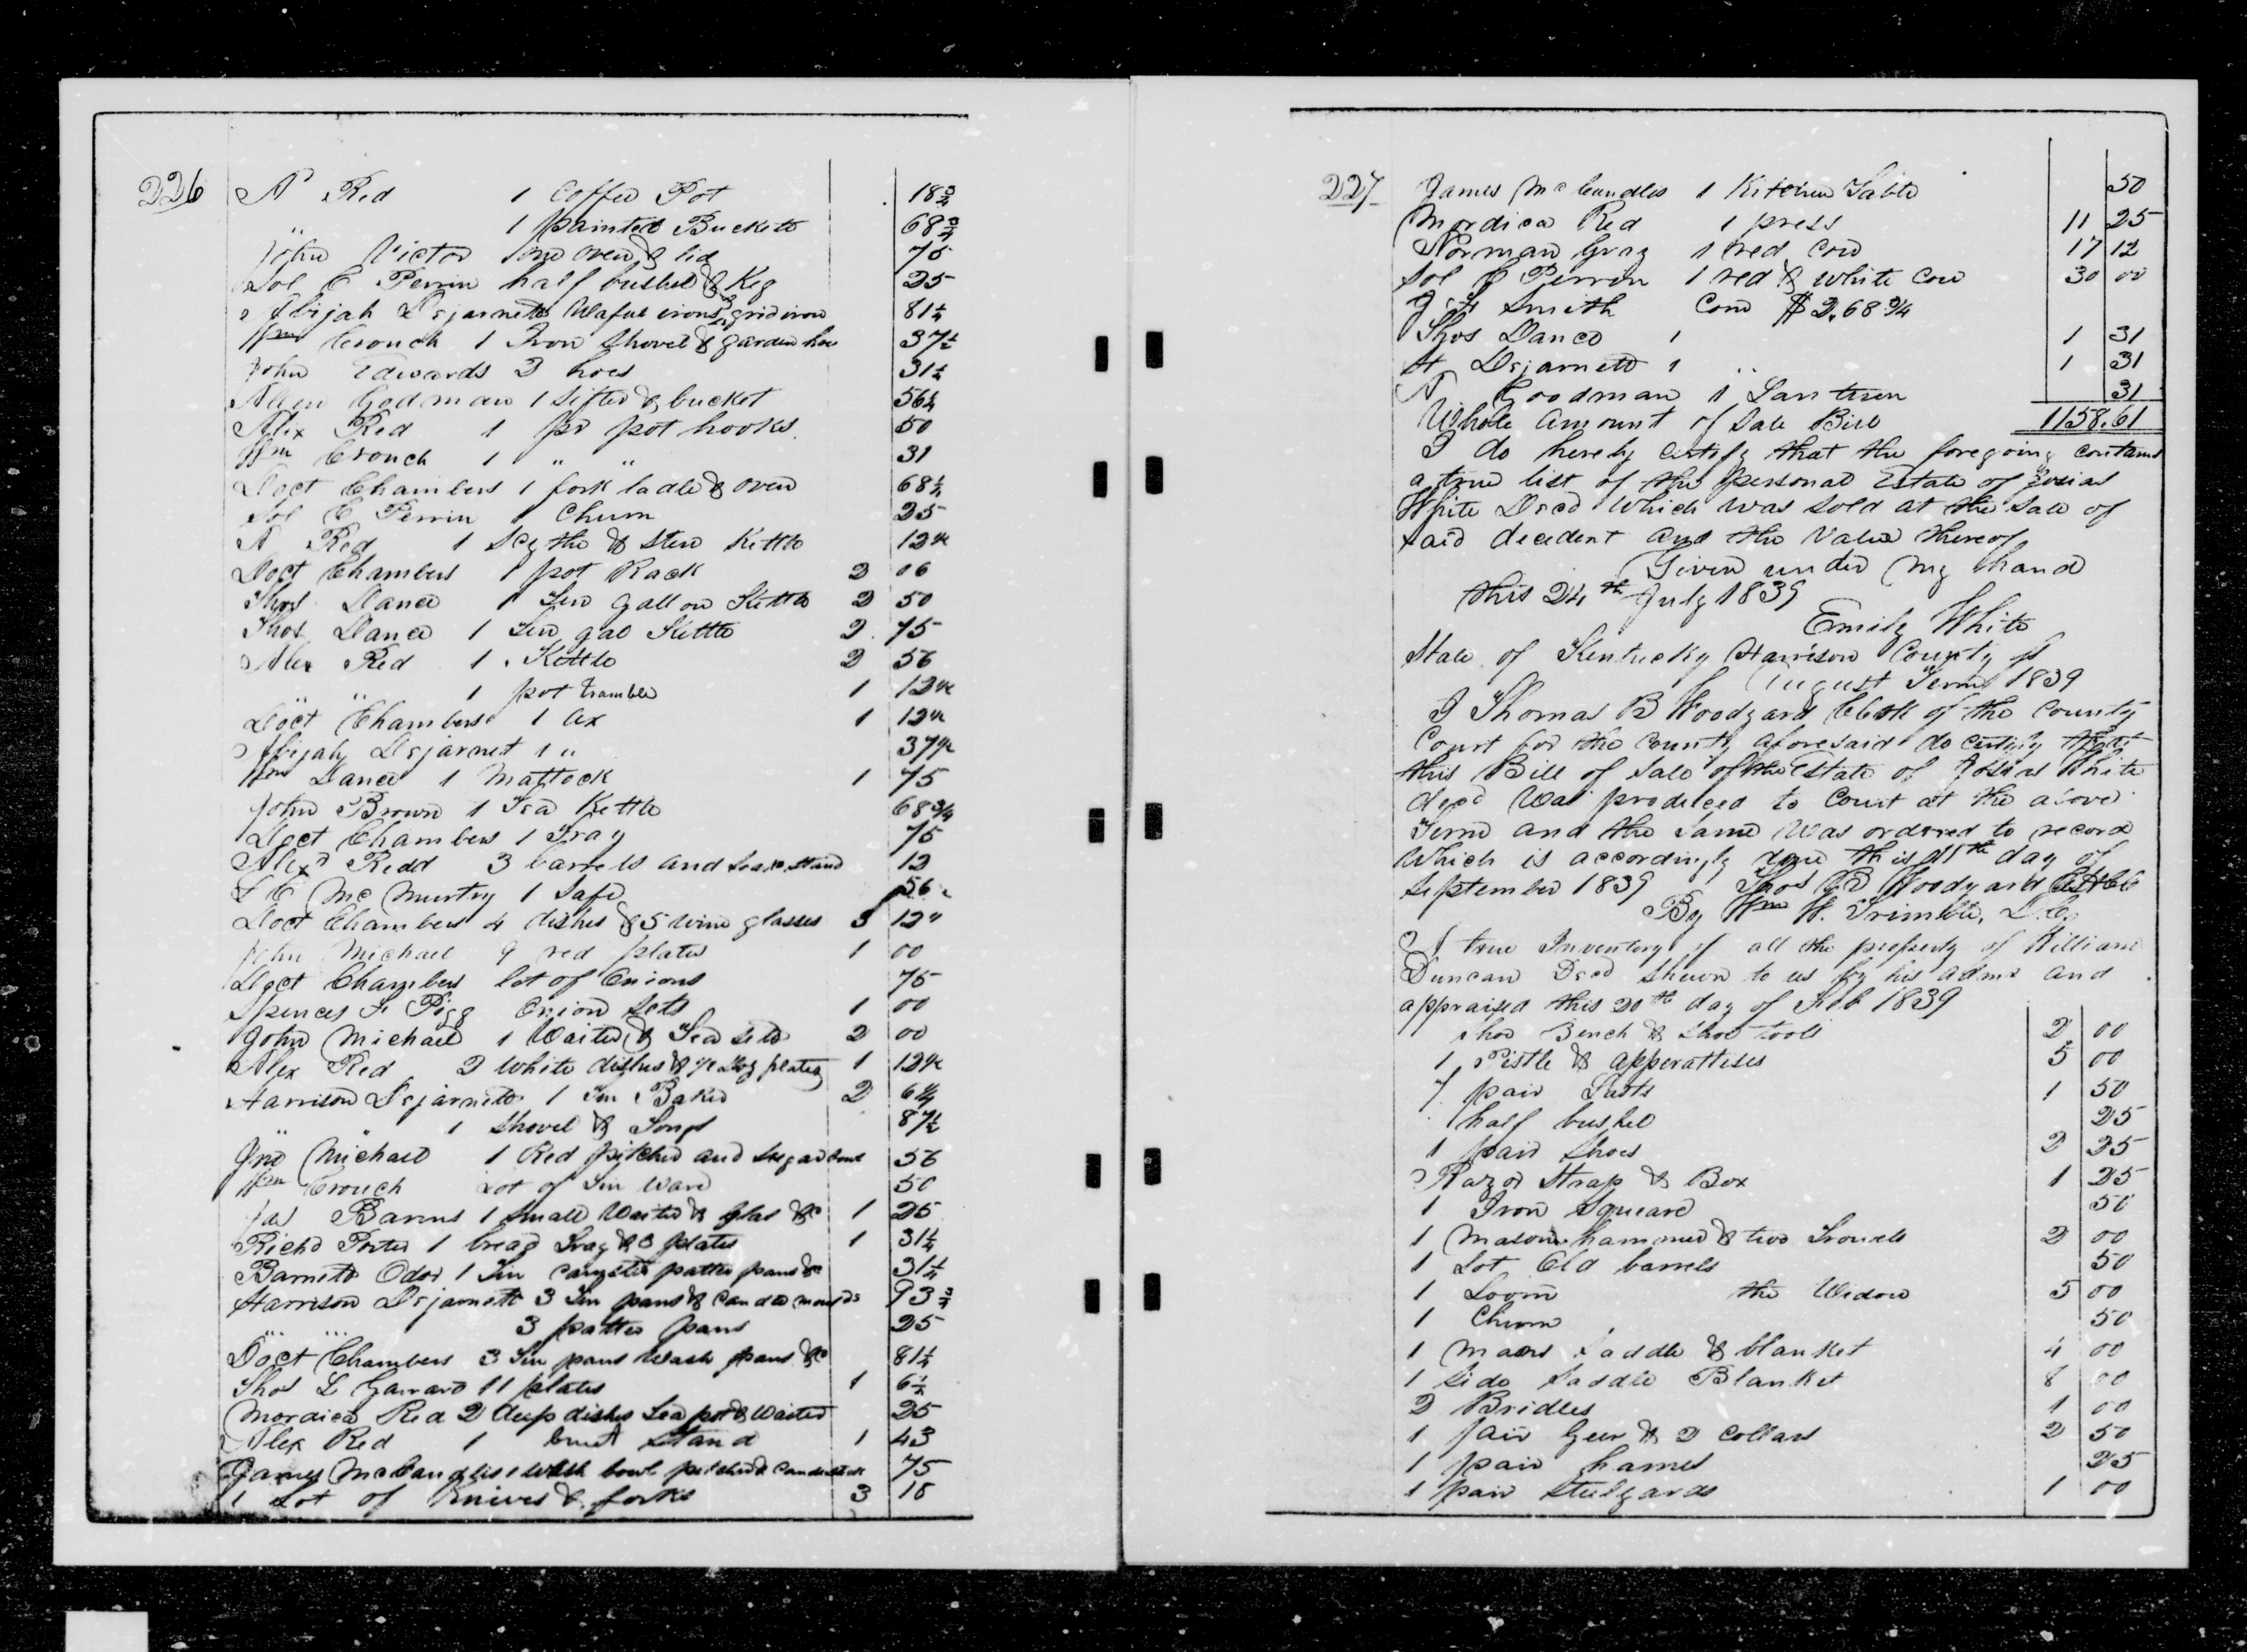 226 A Red 1 Coffee Pot 18 3/4
" 1 painted Buckett 68 3/4
John Victor oven & lid 75
Sol C Perrin half bushel & Keg 25
Abijah Dsjarnett Wafue irons & gridiron 81 1/4
Wm Crouch 1 Iron Shovel & garden hoe 37 1/2
John Edwards 3 hoes 31 1/4
Allen Godman 1 Sifter & bucket 56 1/4
Alex Red 1 pr pot hooks 50
Wm Crouch 1 " " 31
Doct Chambers 1 fork ladle & oven 68 1/4
Sol C Perrin 1 Churn 25
A Red 1 Scythe & Stew Kettle 12 1/2
Doct Chambers 1 pot Rack 2 06
Thos Dance 1 Ten gallon Kettle 2 50
Thos Dance 1 Ten gal Kettle 2 75
Alex Red 1 Kettle 2 56
" " 1 pot 1 12 1/2
Doct Chambers 1 ax 1 12 1/2
Abijah Dsjarnet 1 " 37 1/2
Wm Dance 1 Mattock 1 75
John Brown 1 Tea Kettle 68 3/4
Doct Chambers 1 Tray 75
Alexr Redd 3 barrels and stand 12
McMurtry 1 Safe 56
Doct Chambers 4 dishes & 5 wine glasses 3 12 "
John Michael 9 red plates 1 00
Doct Chambers lot of Onions 75
Spencer F Pigg Onion Sets 1 00
John Michael 1 Waiter & Tea Setts 2 00
Alex Red 2 white dishes & 1/2 Doz plates 1 12 1/2
Harrison Dsjarnett 1 Tin Baker 2 6 1/4
" " 1 Shovel & Tongs 87 1/2
Jno Michael 1 Red pitcher and Sugar bowl 56
Wm Crouch Lot of Tin Ware 50
Jas Barens 1 Small Waiter & glas &c 1 25
Richd Porter 1 bread Tray & 3 plates 1 31 1/4
Barnett Odor 1 Tin patter pans &c 31 1/4
Harrison Dsjarnett 3 Tin pans & Candle moulds 93 3/4
" " 3 patter pans 25
Doct Chambers 3 Tin pans Wash pans &c 81 1/4
Thos L Garrard 11 plates 1 6 1/4
Mordica Red 2 deep dishes Tea pot & Waiter 25
Alex Red 1 Cruet Stand 1 43
James McCandlis 1 Wash bowl pitcher & Candlestick 75
1 Lot of Knives & forks 3 18
227 James McCandles 1 Kitchen Table 50
Mordica Red 1 press 11 25
Norman Gray 1 red cow 17 12
Sol C Perrin 1 red & white cow 30 00
Smith Corn $2.68 3/4
Thos Dance 1 1 31
H Dsjarnett 1 " 1 31
A Goodman 1 Lantern 31
Whole amount of Sale Bill 1158.61
I do hereby certify that the foregoing contains
a true list of the personal Estate of Josias
White Decd Which was sold at the sale of
said decedent and the Value thereof
Given under my hand
this 24th July 1839
Emily White
State of Kentucky Harrison County
August Term 1839
I Thomas B Woodyard Clerk of the County
Court for the County aforesaid do certify that
this Bill of Sale of the Estate of Josias White
decd Was produced to Court at the above
Term and the Same Was ordered to record
Which is accordingly done this day of
September 1839 Thos B Woodyard
By Wm W. Trimble, D.C.
A true Inventory of all the property of William
Duncan Decd Shewn to us by his admr and
appraised this 20th day of Feb 1839
Shoe Bench & Shoe tools 2 00
1 Pistle & apperattises 5 00
7 pair Lasts 1 50
half bushel 25
1 pair Shoes 2 25
Razor Strap & Box 1 25
1 Iron Square 50
1 Mason hammer & two Trowels 2 00
1 Lot Old barrels 50
1 Loom the Widow 5 00
1 Churn 50
1 Maans Saddle & blanket 4 00
1 Side Saddle Blanket 8 00
2 Bridles 1 00
1 pair Geer & 2 Collars 2 50
1 pair hames 25
1 pair Stulyards 1 00